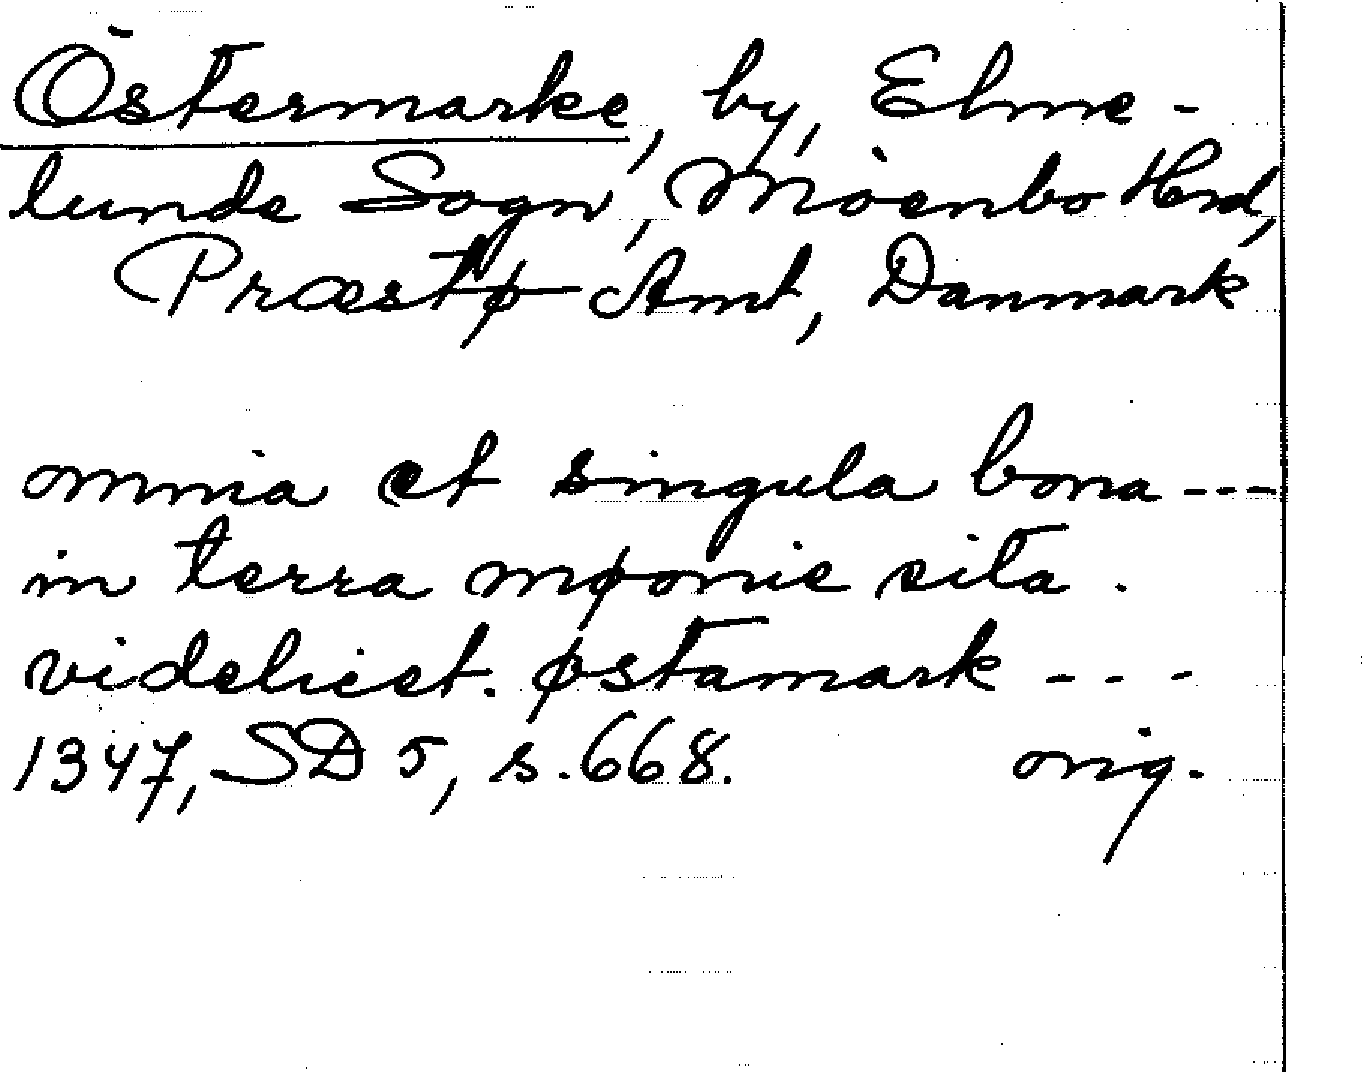 Östermarke, by, Elme-
lunde Sogn, Möenbo Hrd,
Præstø Amt, Danmark
omnia et singula bona ---
in terra møonie sita.
videlicet. østamark ---
1347, SD 5, s. 668. orig.